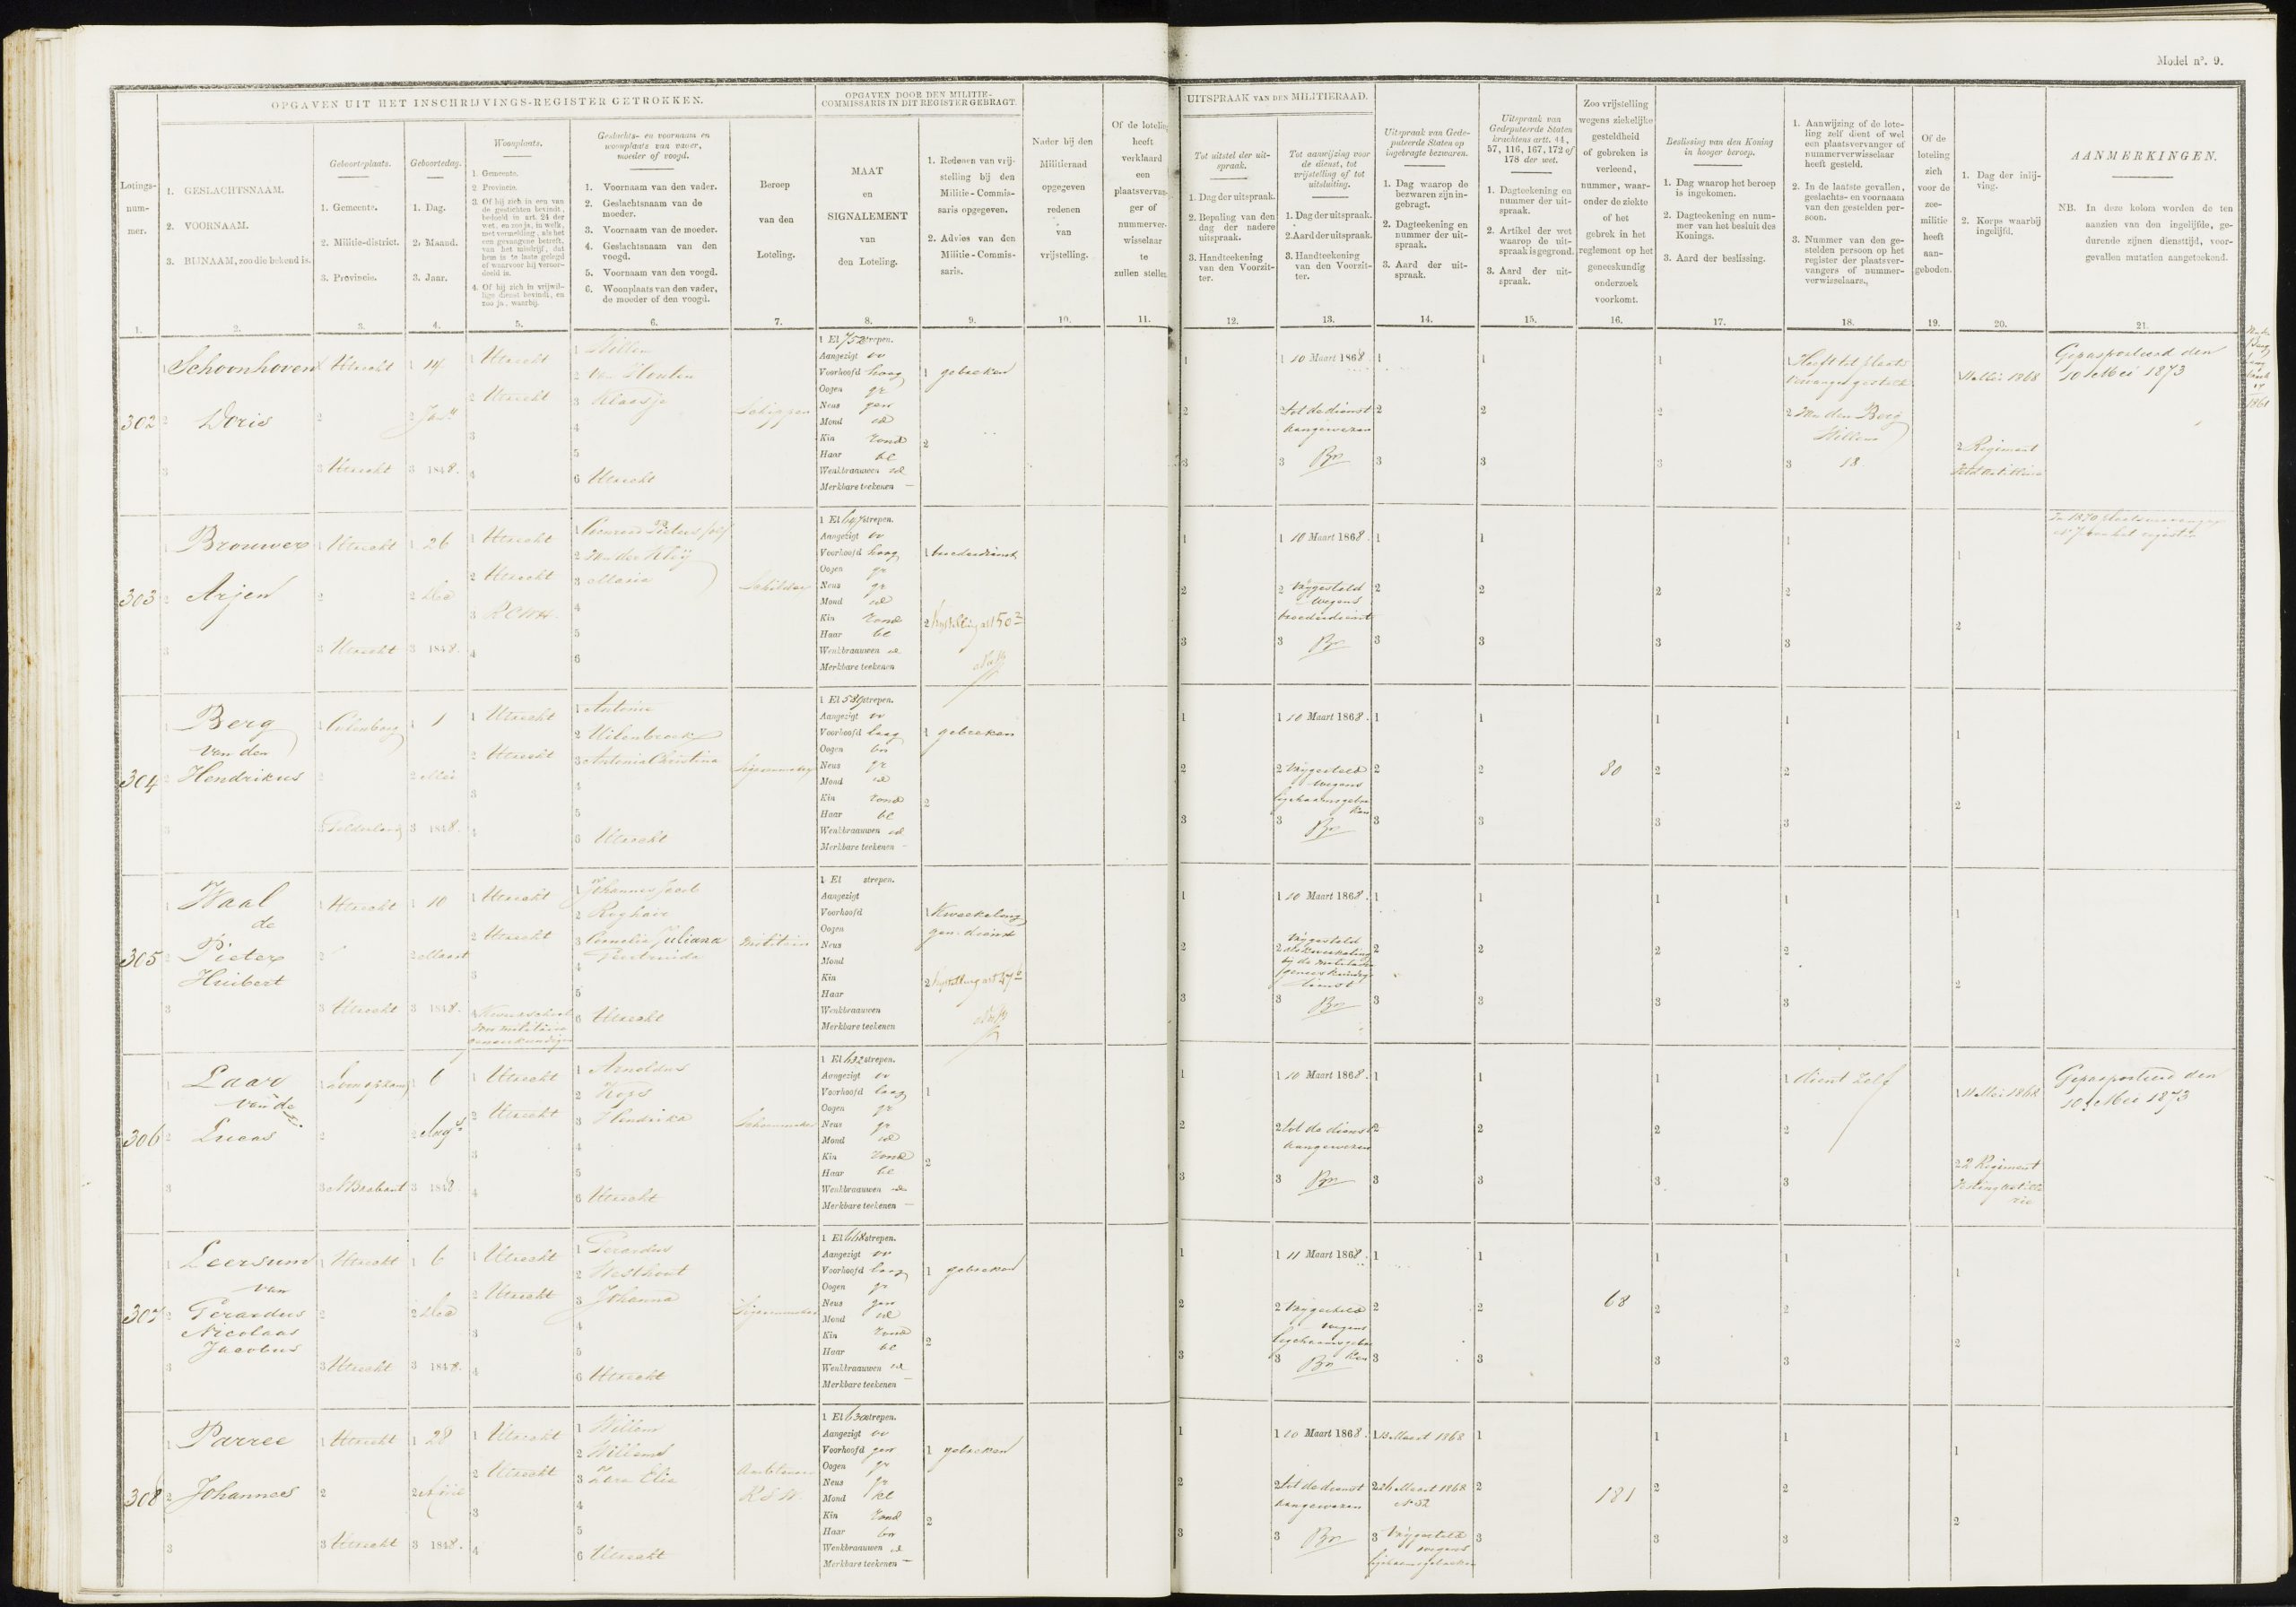 Model nº. 9.
OPGAVEN UIT HET INSCHRIJVINGS-REGISTER GETROKKEN.
OPGAVEN DOOR DEN MILITIE-
COMMISSARIS IN DIT REGISTER GEBRAGT.
UITSPRAAK VAN DEN MILITIERAAD.
Lotings-
num-
mer.
1.
1. GESLACHTSNAAM.
2. VOORNAAM.
3. BIJNAAM, zoo die bekend is.
2.
Geboorteplaats.
1. Gemeente.
2. Militie-district.
3. Provincie.
3.
Geboortedag.
1. Dag.
2. Maand.
3. Jaar.
4.
Woonplaats.
1. Gemeente.
2. Provincie.
3. Of hij zich in een van
de gestichten bevindt,
bedoeld in art. 24 der
wet, en zoo ja, in welk,
met vermelding, als het
een gevangene betreft,
van het misdrijf, dat
hem is te laste gelegd
of waarvoor hij veroor-
deeld is.
4. Of hij zich in vrijwil-
lige dienst bevindt, en
zoo ja, waarbij.
5.
Geslachts- en voornaam en
woonplaats van vader,
moeder of voogd.
1. Voornaam van den vader.
2. Geslachtsnaam van de
moeder.
3. Voornaam van de moeder.
4. Geslachtsnaam van den
voogd.
5. Voornaam van den voogd.
6. Woonplaats van den vader,
de moeder of den voogd.
6.
Beroep
van den
Loteling.
7.
MAAT
en
SIGNALEMENT
van
den Loteling.
8.
1. Redenen van vrij-
stelling bij den
Militie-Commis-
saris opgegeven.
2. Advies van den
Militie-Commis-
saris.
9.
Nader bij den
Militieraad
opgegeven
redenen
van
vrijstelling.
10.
Of de loteling
heeft
verklaard
een
plaatsvervan-
ger of
nummerver-
wisselaar
te
zullen stellen.
11.
Tot uitstel der uit-
spraak.
1. Dag der uitspraak.
2. Bepaling van den
dag der nadere
uitspraak.
3. Handteekening
van den Voorzit-
ter.
12.
Tot aanwijzing voor
de dienst, tot
vrijstelling of tot
uitsluiting.
1. Dag der uitspraak.
2. Aard der uitspraak.
3. Handteekening
van den Voorzit-
ter.
13.
Uitspraak van Gede-
puteerde Staten op
ingebragte bezwaren.
1. Dag waarop de
bezwaren zijn in-
gebragt.
2. Dagteekening en
nummer der uit-
spraak.
3. Aard der uit-
spraak.
14.
Uitspraak van
Gedeputeerde Staten
krachtens artt. 44,
57, 116, 167, 172 of
178 der wet.
1. Dagteekening en
nummer der uit-
spraak.
2. Artikel der wet
waarop de uit-
spraak is gegrond.
3. Aard der uit-
spraak.
15.
Zoo vrijstelling
wegens ziekelijke
gesteldheid
of gebreken is
verleend,
nummer, waar-
onder de ziekte
of het
gebrek in het
reglement op het
geneeskundig
onderzoek
voorkomt.
16.
Beslissing van den Koning
in hooger beroep.
1. Dag waarop het beroep
is ingekomen.
2. Dagteekening en num-
mer van het besluit des
Konings.
3. Aard der beslissing.
17.
1. Aanwijzing of de lote-
ling zelf dient of wel
een plaatsvervanger of
nummerverwisselaar
heeft gesteld.
2. In de laatste gevallen,
geslachts- en voornaam
van den gestelden per-
soon.
3. Nummer van den ge-
stelden persoon op het
register der plaatsver-
vangers of nummer-
verwisselaars.
18.
Of de
loteling
zich
voor de
zee-
militie
heeft
aan-
geboden.
19.
1. Dag der inlij-
ving.
2. Korps waarbij
ingelijfd.
20.
AANMERKINGEN.
NB. In deze kolom worden de ten
aanzien van den ingelijfde, ge-
durende zijnen diensttijd, voor-
gevallen mutatien aangeteekend.
21.
302
Schoonhoven
Doris
1 Utrecht
3 Utrecht
1 14
2 Jan
3 1848.
1 Utrecht
2 Utrecht
1 Willem
2 van Houten
3 Klaasje
6 Utrecht
Schipper
1 El 752 strepen.
Aangezigt ov
Voorhoofd hoog
Oogen gr
Neus gew
Mond id
Kin rond
Haar bl
Wenkbraauwen id
Merkbare teekenen —
1 gebreken
1 10 Maart 1868.
2 tot de dienst
aangewezen
3
1 Heeft tot plaats
vervanger gesteld
2 van den Berg
Willem
3 18
11 Mei 1868
2 Regiment
Gepasporteerd den
10 Mei 1873
303
Brouwer
Arjen
1 Utrecht
3 Utrecht
1 26
2 Dec
3 1848.
1 Utrecht
2 Utrecht
2 van der Klij
3 Maria
Schilder
1 El 697 strepen.
Aangezigt ov
Voorhoofd hoog
Oogen gr
Neus gr
Mond id
Kin rond
Haar bl
Wenkbraauwen id
Merkbare teekenen
1 broederdienst
1 10 Maart 1868.
2 Vrijgesteld
wegens
broederdienst
304
Berg
van den
Hendrikus
1 Culenborg
3 Gelderland
1 1
2 Mei
3 1848.
1 Utrecht
2 Utrecht
1 Antonie
2 Uilenbroek
3 Antonia Christina
6 Utrecht
Sigarenmaker
1 El 589 strepen.
Aangezigt ov
Voorhoofd laag
Oogen br
Neus gr
Mond id
Kin rond
Haar bl
Wenkbraauwen id
Merkbare teekenen
1 gebreken
1 10 Maart 1868.
2 Vrijgesteld
wegens
ligchaamsgebre
ken
80
305
Waal
de
Pieter
Huibert
1 Utrecht
3 Utrecht
1 10
2 Maart
3 1848.
1 Utrecht
2 Utrecht
4 Kweekschool
voor militaire
geneeskundigen
1 Johannes Jacob
3 Cornelia Juliana
Geertruida
6 Utrecht
militair
1 El strepen.
Aangezigt
Voorhoofd
Oogen
Neus
Mond
Kin
Haar
Wenkbraauwen
Merkbare teekenen
1 Kweekeling
gen. dienst
1 10 Maart 1868.
Vrijgesteld
2 als kweekeling
bij de militaire
geneeskundige
dienst
306
Laar
van de
Lucas
3 N Brabant
1 6
2 Aug
3 1848.
1 Utrecht
2 Utrecht
1 Arnoldus
2 Kops
3 Hendrika
6 Utrecht
Schoenmaker
1 El 632 strepen.
Aangezigt ov
Voorhoofd laag
Oogen gr
Neus gr
Mond id
Kin rond
Haar bl
Wenkbraauwen id
Merkbare teekenen —
1 10 Maart 1868.
2 tot de dienst
aangewezen
1 dient zelf
11 Mei 1868
2 2 Regiment
Vesting Artille
rie
Gepasporteerd den
10 Mei 1873
307
Leersum
van
Gerardus
Nicolaas
Jacobus
1 Utrecht
3 Utrecht
1 6
2 Dec
3 1848.
1 Utrecht
2 Utrecht
1 Gerardus
2 Westhout
3 Johanna
6 Utrecht
Sigarenmaker
1 El 668 strepen.
Aangezigt ov
Voorhoofd laag
Oogen gr
Neus gew
Mond id
Kin rond
Haar bl
Wenkbraauwen id
Merkbare teekenen —
1 gebreken
1 11 Maart 1868.
2 Vrijgesteld
wegens
ligchaamsgebre
ken
68
308
Parree
Johannes
1 Utrecht
3 Utrecht
1 28
2 April
3 1848.
1 Utrecht
2 Utrecht
1 Willem
2 Willems
6 Utrecht
1 El 630 strepen.
Aangezigt ov
Voorhoofd gew
Oogen gr
Neus gr
Mond kl
Kin rond
Haar br
Wenkbraauwen id
Merkbare teekenen —
1 gebreken
1 10 Maart 1868.
2 tot de dienst
aangewezen
1 13 Maart 1868
2 26 Maart 1868
N 32
3 Vrijgesteld
wegens
ligchaamsgebreken
181